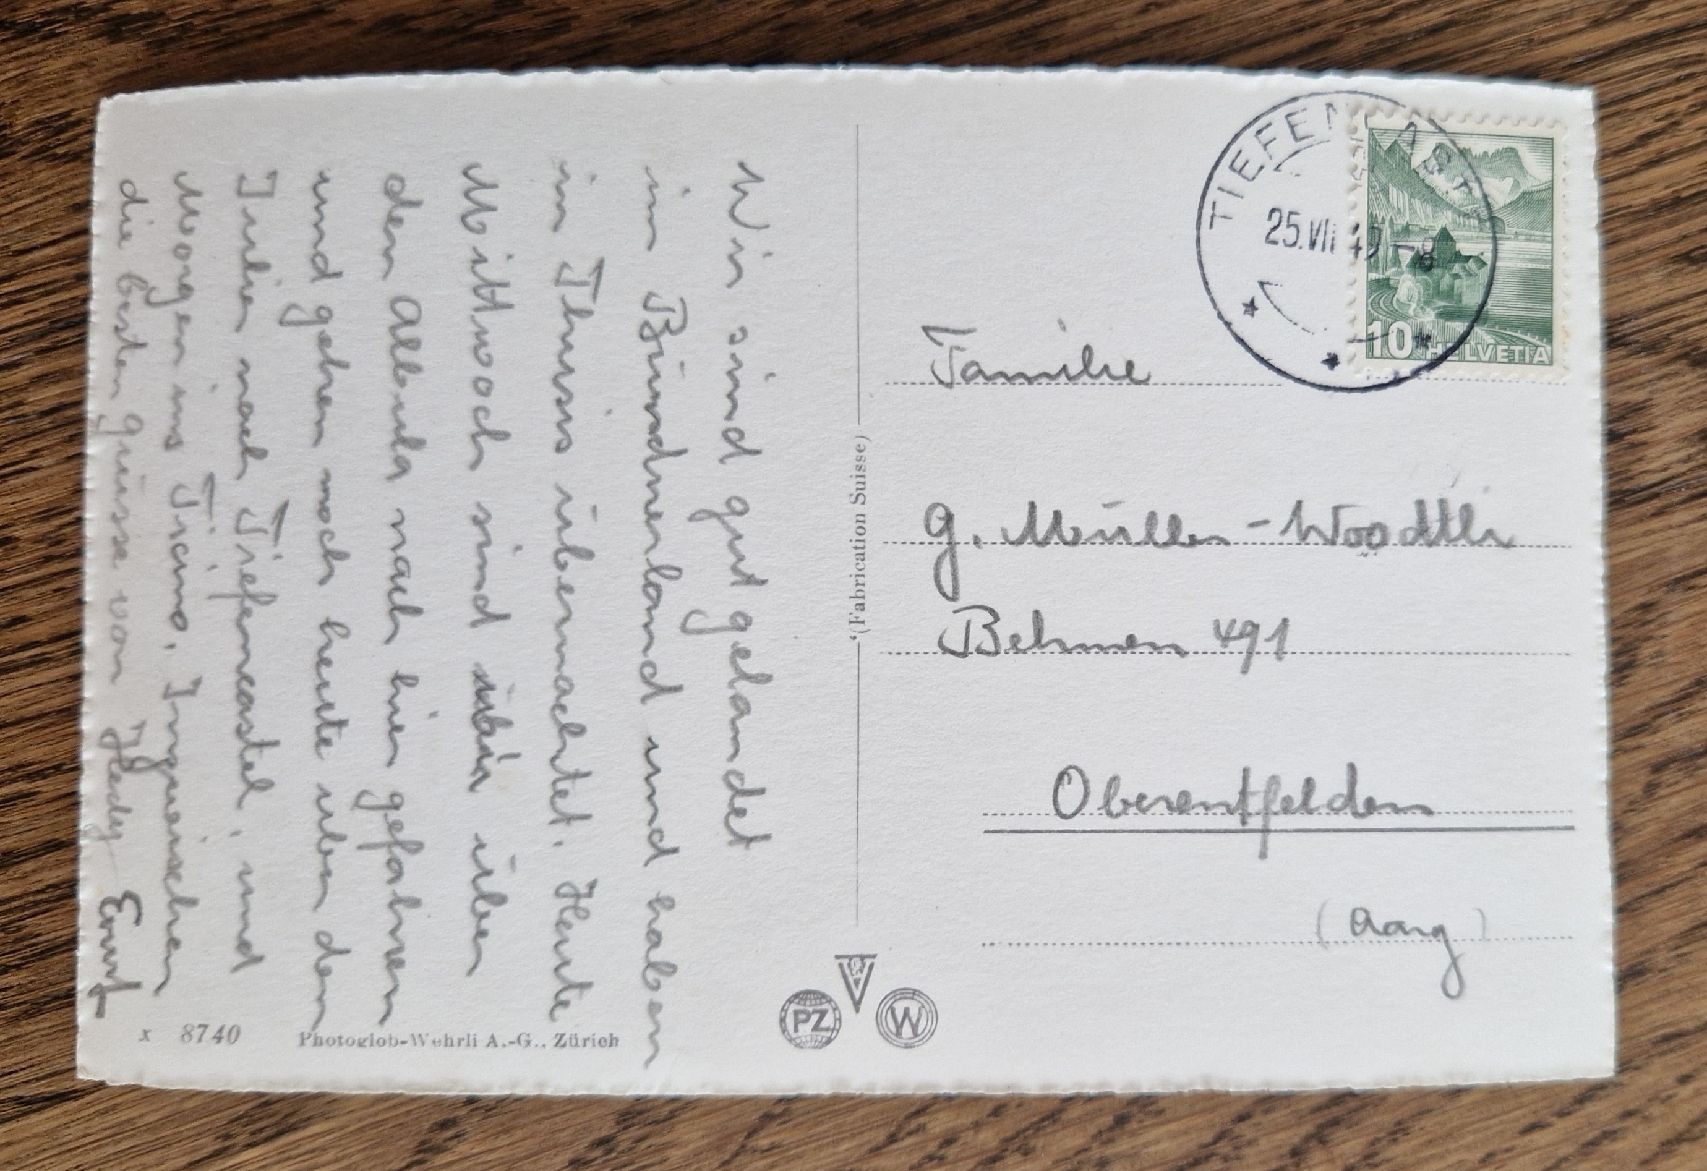 Wir sind gut gelandet
im Bündnerland und haben
in Thusis übernachtet. Heute
Mittwoch sind über
den Albula nach hier gefahren
und gehen noch heute über den
Julier nach Tiefencastel, und
Morgen ins Ticino. Inzwischen
die besten Grüsse von Hedy Ernst
x 8740 Photoglob-Wehrli A.-G., Zürich
(Fabrication Suisse)
PZ
W
TIEFENCASTEL
25.VII
10 HELVETIA
Familie
G. Müller-Woodtli
491
Oberentfelden
(Aarg)